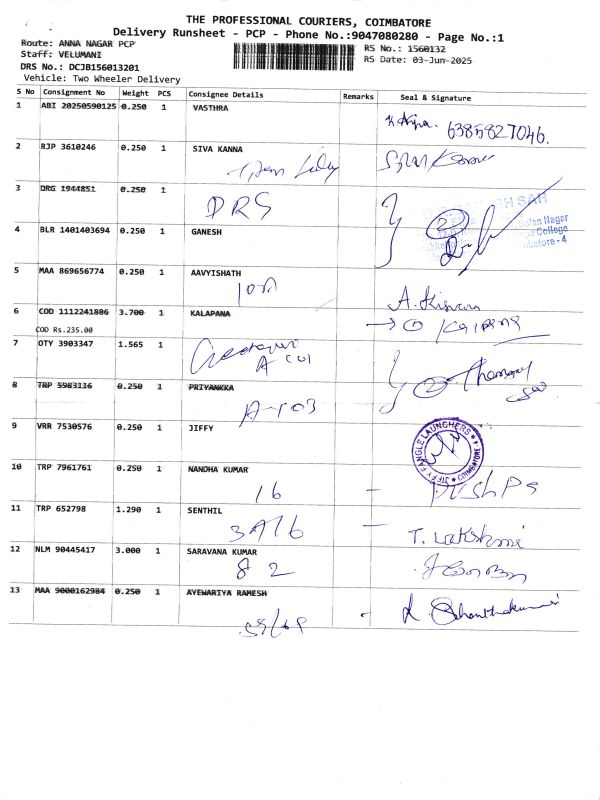 THE PROFESSIONAL COURIERS, COIMBATORE
Delivery Runsheet - PCP - Phone No.:9047080280 - Page No.:1
Route: ANNA NAGAR PCP
Staff: VELUMANI
DRS No.: DCJB156013201
Vehicle: Two Wheeler Delivery
RS No.: 1560132
RS Date: 03-Jun-2025
S No Consignment No Weight PCS Consignee Details Remarks Seal & Signature
1 ABI 20250590125 0.250 1 VASTHRA
6385827046.
2 RJP 3610246 0.250 1 SIVA KANNA
3 DRG 1944851 0.250 1
DRS
4 BLR 1401403694 0.250 1 GANESH
2
College
5 MAA 869656774 0.250 1 AAVYISHATH
A. Kisvara
6 COD 1112241886 3.700 1 KALAPANA
COD Rs.235.00
7 OTY 3903347 1.565 1
2
8 TRP 5983116 0.250 1 PRIYANKKA
A-103
9 VRR 7530576 0.250 1 JIFFY
JIFFY FANGLE LAUNCHERS
COIMBATORE
10 TRP 7961761 0.250 1 NANDHA KUMAR
16
11 TRP 652798 1.290 1 SENTHIL
3A16 T. Lakshmi
12 NLM 90445417 3.000 1 SARAVANA KUMAR
8 2
13 MAA 9000162984 0.250 1 AYEWARIYA RAMESH